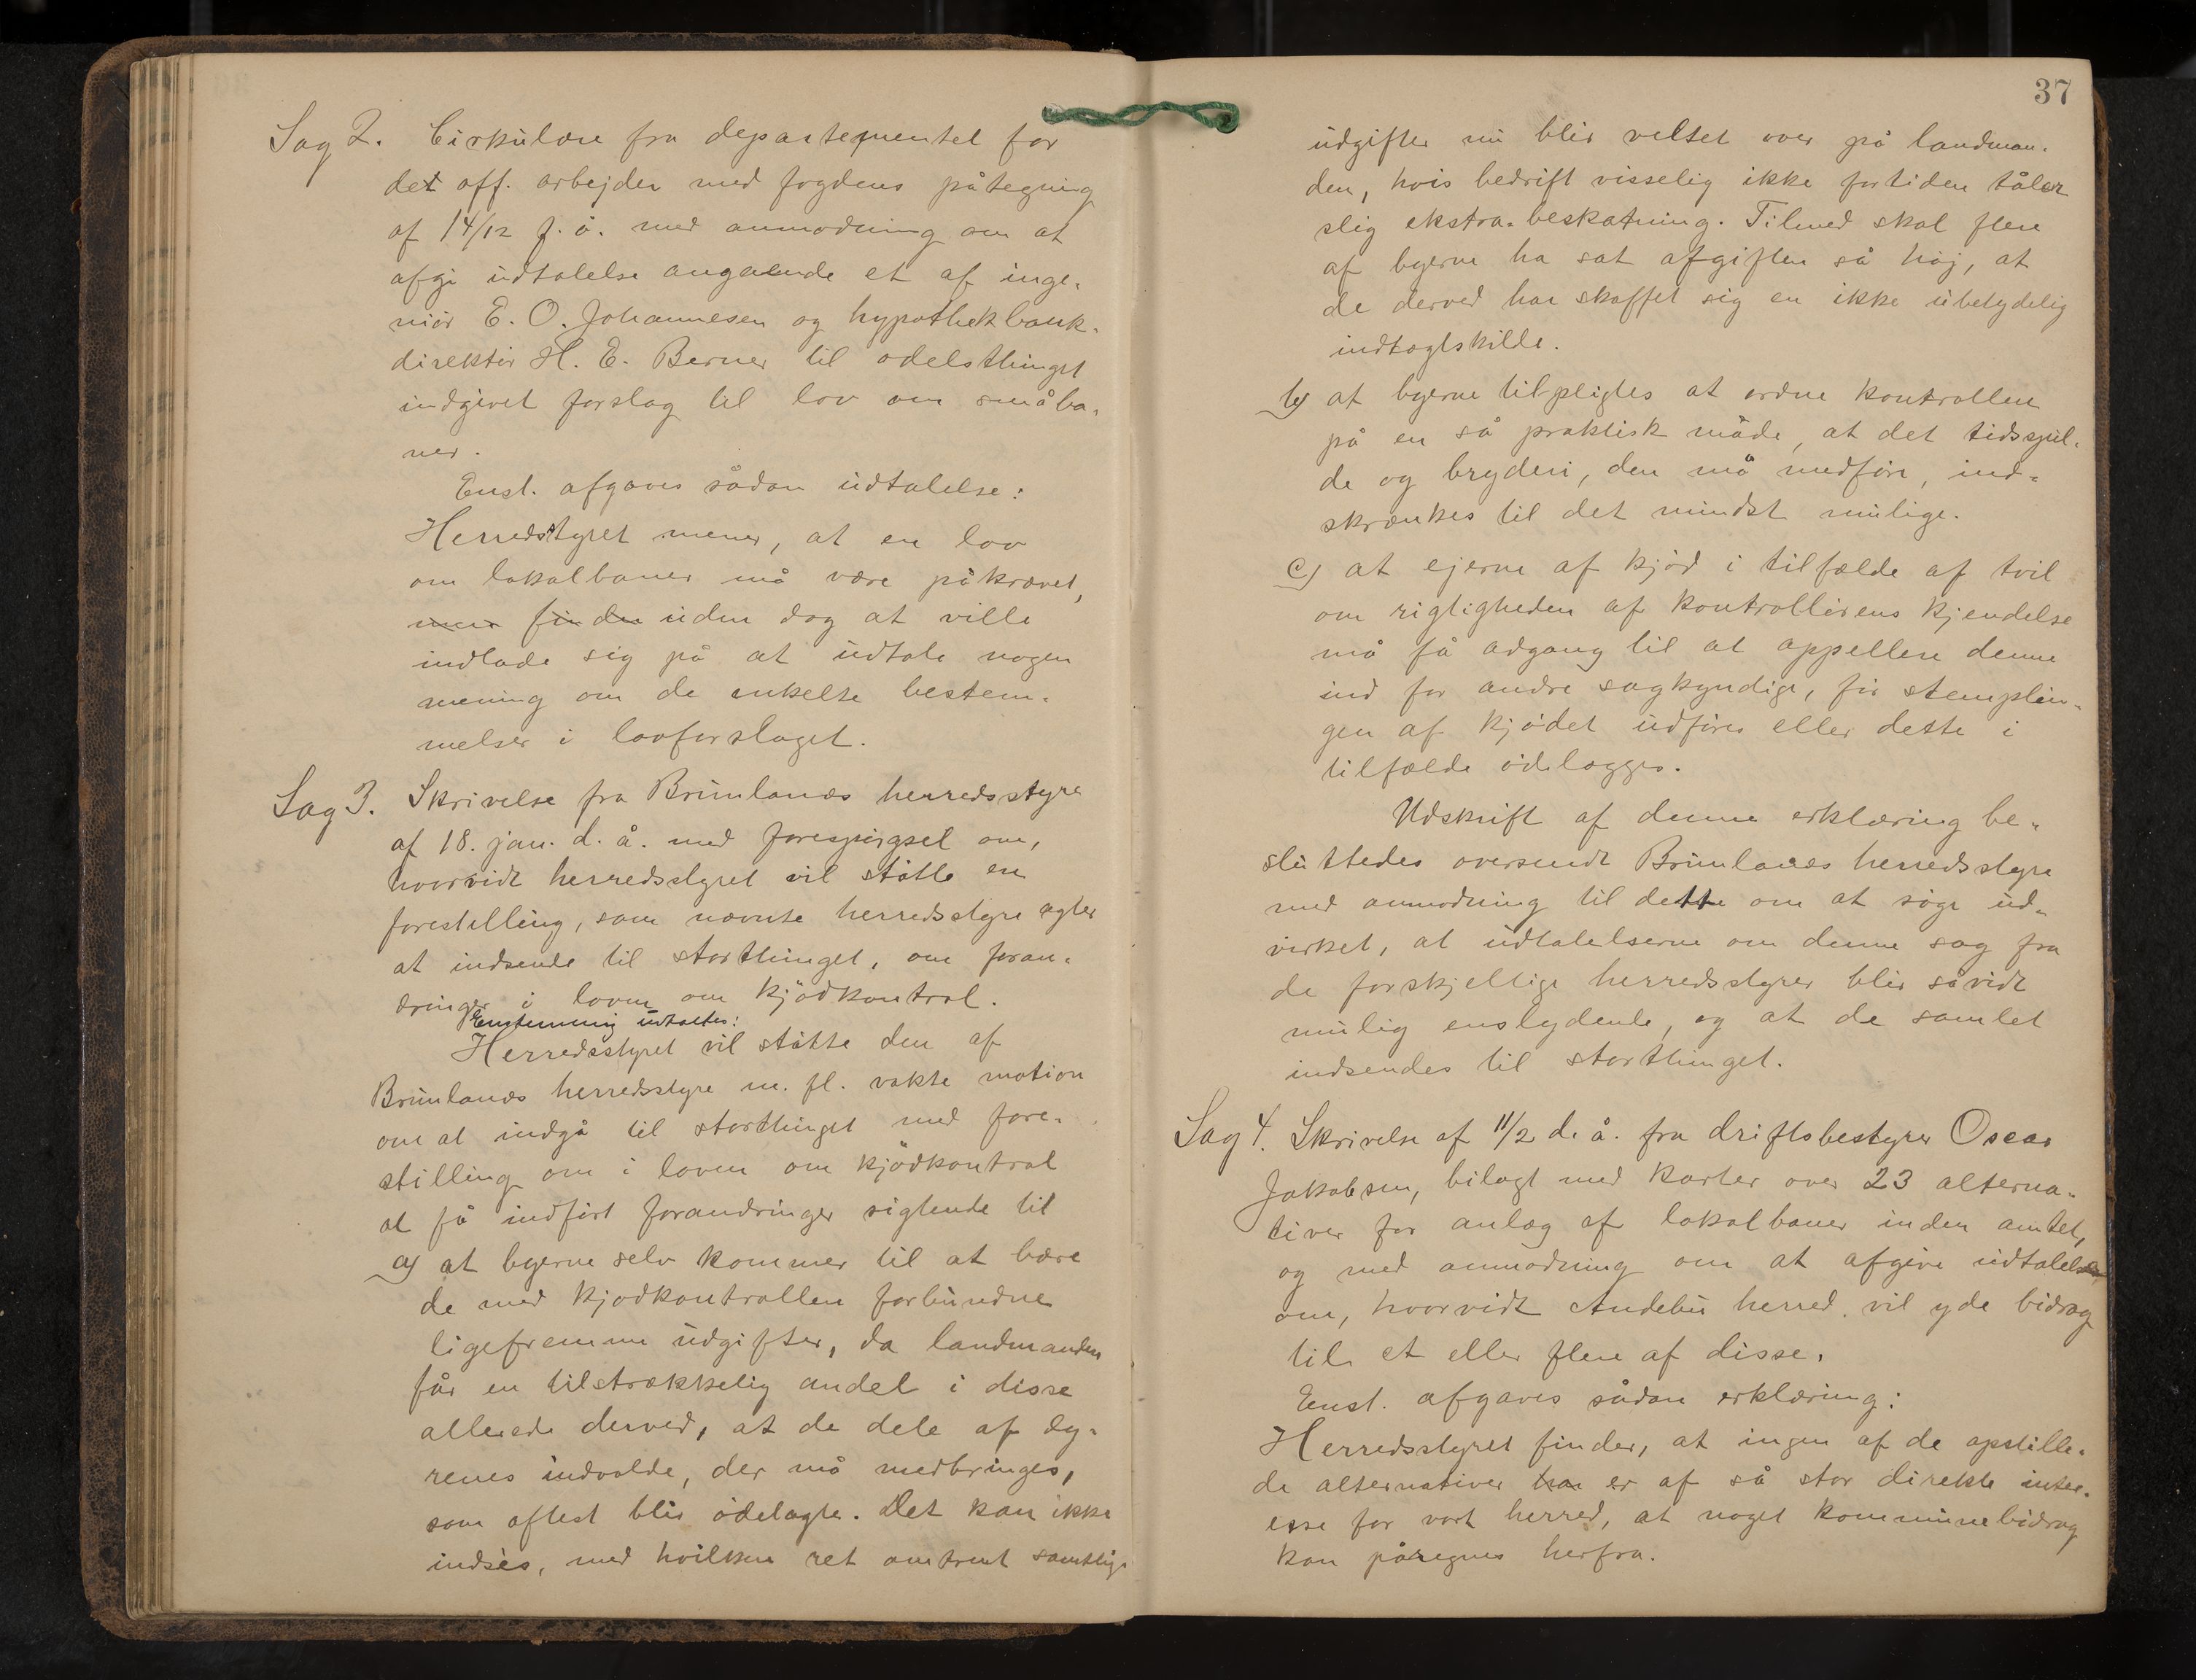 Sag 2. Cirkulære fra departementet for
det off. arbejder med fogdens påtegning
af 14/12 f. å. med anmodning om at
afgi udtalelse angaaende et af inge-
niør E. O. Johannesen og hypothekbank-
direktør H. E. Berner til odelsthinget
indgivet forslag til lov om småba-
ner.
Enst. afgaves sådan udtalelse:
Herredstyret mener, at en lov
om lokalbaner må være påkrævet,
men finder uden dog at ville
indlade sig på at udtale nogen
mening om de enkelte bestem-
melser i lovforslaget.
Sag 3. Skrivelse fra Brunlanæs herredsstyre
af 18. jan. d. å. med forespørgsel om,
hvorvidt herredsstyret vil støtte en
forestilling, som nævnte herredsstyre agter
at indsende til storthinget, om foran-
dringer i loven om kjødkontrol.
Enstemmig udtaltes:
Herredsstyret vil støtte den af
Brunlanæs herredsstyre m. fl. vakte motion
om at indgå til storthinget med fore-
stilling om i loven om kjødkontrol
at få indført forandringer sigtende til
a) at byerne selv kommer til at bære
de med kjødkontrollen forbundne
ligefremme udgifter, da landmanden
får en tilstrækkelig andel i disse
allerede derved, at de dele af dy-
renes indvolde, der må medbringes,
som oftest blir ødelagte. Det kan ikke
indsès, med hvilken ret omtrent samtlige
37
udgifter nu blir veltet over på landman-
den, hvis bedrift visselig ikke fortiden tåler
slig ekstra-beskatning. Tilmed skal flere
af byerne ha sat afgiften så høj, at
de derved har skaffet sig en ikke ubetydelig
indtægtskilde.
b) at byerne tilpligtes at ordne kontrollen
på en så praktisk måde, at det tidsspil-
de og bryderi, den må medføre, ind-
skrænkes til det mindst mulige.
c) at ejerne af kjød i tilfælde af tvil
om rigtigheden af kontrollørens kjendelse
må få adgang til at appellere denne
ind for andre sagkyndige, før stemplin-
gen af kjødet udføres eller dette i
tilfælde ødelægges.
Udskrift af denne erklæring be-
sluttedes oversendt Brunlanæs herredsstyre
med anmodning til dette om at søge ud-
virket, at udtalelserne om denne sag fra
de forskjellige herredsstyrer blir såvidt
mulig enslydende, og at de samlet
indsendes til storthinget.
Sag 4. Skrivelse af 11/2 d. å. fra driftsbestyrer Oscar
Jakobsen, bilagt med karter over 23 alterna-
tiver for anlæg af lokalbaner inden amtet,
og med anmodning om at afgive udtalelse
om, hvorvidt Andebu herred vil yde bidrag
til et eller flere af disse.
Enst. afgaves sådan erklæring:
Herredsstyret finder, at ingen af de opstille-
de alternativer har er af så stor direkte inter-
esse for vort herred, at noget kommunebidrag
kan påregnes herfra.